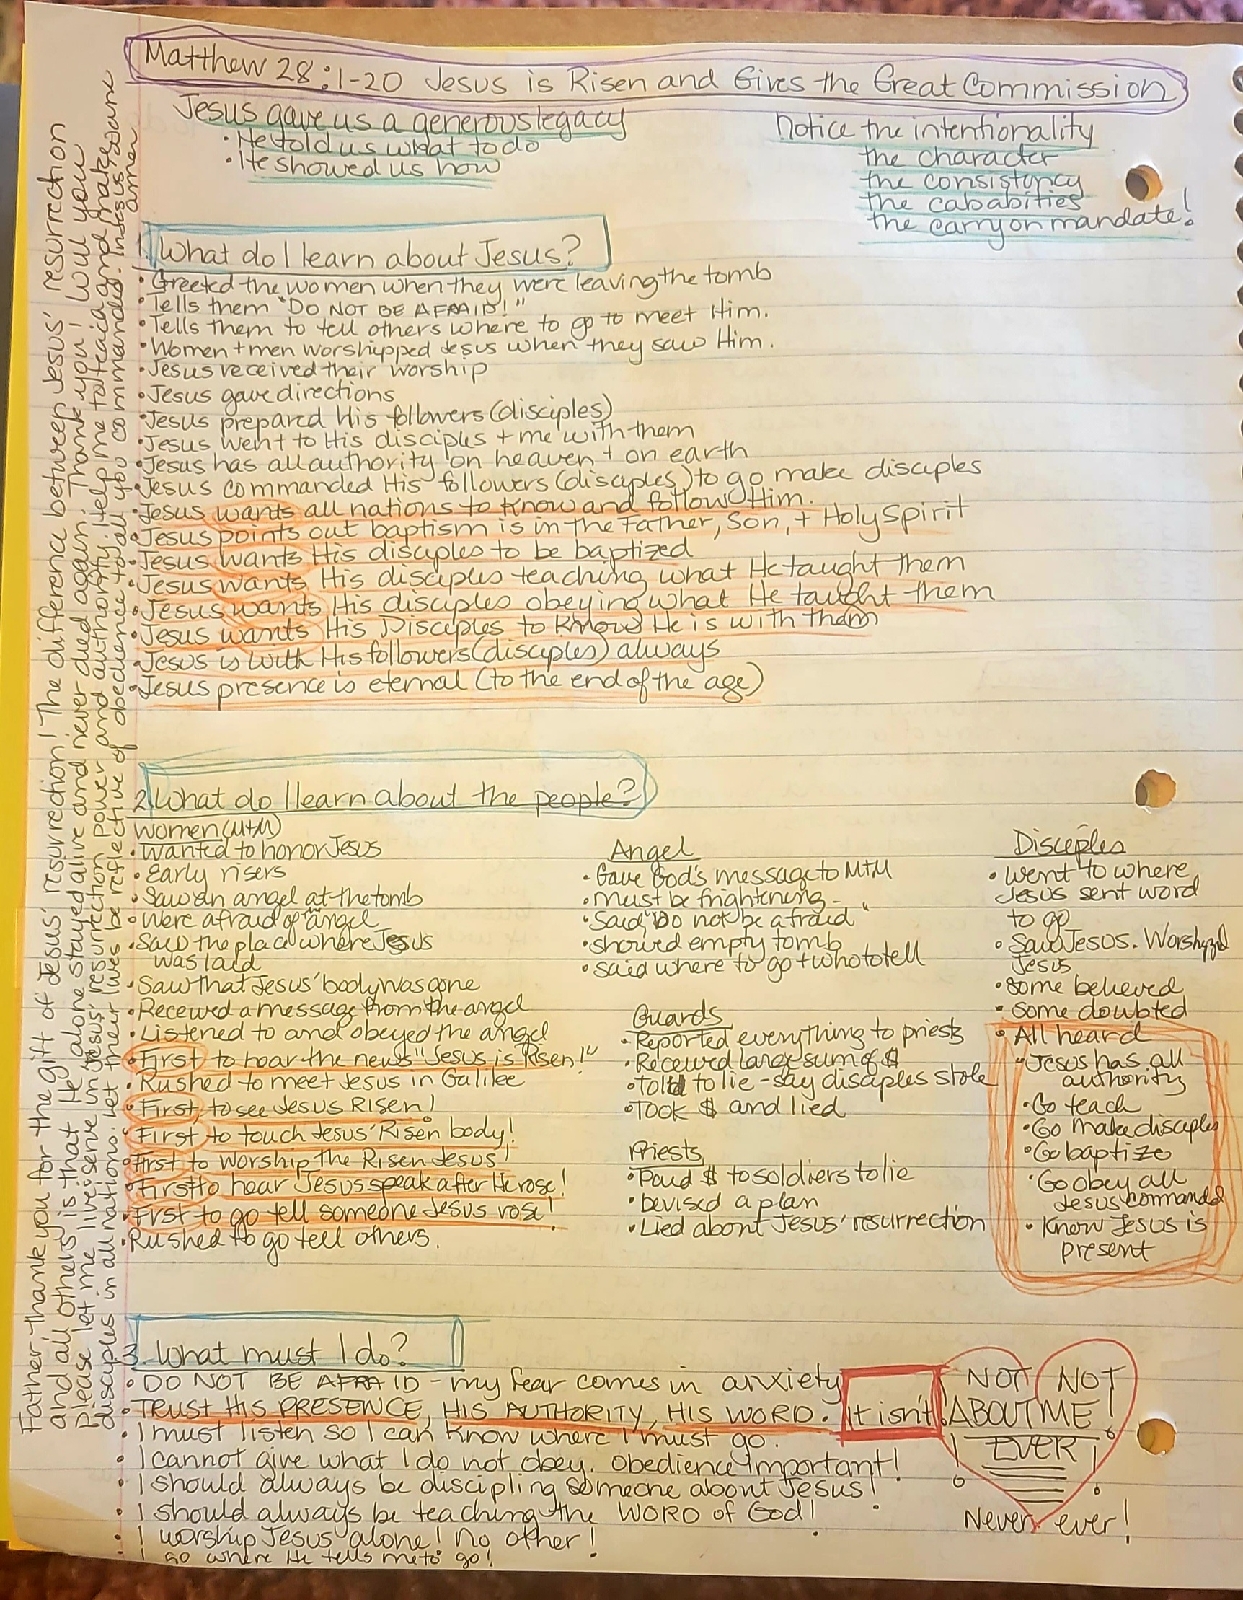 Matthew 28:1-20 Jesus is Risen and Gives the Great Commission
Jesus gave us a generous legacy
• He told us what to do
• He showed us how
Notice the intentionality
the character
the consistency
the cababities
the carry on mandate!
1. What do I learn about Jesus?
• Greeted the women when they were leaving the tomb
• Tells them "DO NOT BE AFRAID!"
• Tells them to tell others where to go to meet Him.
• Women + men worshipped Jesus when they saw Him.
• Jesus received their worship
• Jesus gave directions
• Jesus prepared His followers (disciples)
• Jesus went to His disciples + me with them
• Jesus has all authority on heaven + on earth
• Jesus commanded His followers (disciples) to go make disciples
• Jesus wants all nations to know and follow Him.
• Jesus points out baptism is in the Father, Son, + Holy Spirit
• Jesus wants His disciples to be baptized
• Jesus wants His disciples teaching what He taught them
• Jesus wants His disciples obeying what He taught them
• Jesus wants His Disciples to know He is with them
• Jesus is with His followers (disciples) always
• Jesus presence is eternal (to the end of the age)
2. What do I learn about the people?
Women (M+M)
• Wanted to honor Jesus
• Early risers
• Saw an angel at the tomb
• Were afraid of angel
• Saw the place where Jesus
was laid
• Saw that Jesus' body was gone
• Received a message from the angel
• Listened to and obeyed the angel
• First to hear the news "Jesus is Risen!"
• Rushed to meet Jesus in Galilee
• First to see Jesus RISEN!
• First to touch Jesus' Risen body!
• First to worship the Risen Jesus!
• First to hear Jesus speak after He rose!
• First to go tell someone Jesus rose!
• Rushed to go tell others.
Angel
• Gave God's message to M+M
• must be frightning -
• Said "Do not be afraid"
• showed empty tomb
• said where to go + who to tell
Guards
• Reported everything to priests
• Received large sum of $
• Told to lie - say disciples stole
• Took $ and lied
Priests
• Paid $ to soldiers to lie
• Devised a plan
• Lied about Jesus' resurrection
Disciples
• Went to where
Jesus sent word
to go
• Saw Jesus. Worshyped
Jesus
• some believed
• some doubted
• All heard
• Jesus has all
authority
• Go teach
• Go make disciples
• Go baptize
• Go obey all
Jesus commanded
• Know Jesus is
present
3. What must I do?
• DO NOT BE AFRAID - my fear comes in anxiety
• TRUST HIS PRESENCE, HIS AUTHORITY, HIS WORD.
• I must listen so I can know where I must go.
• I cannot give what I do not obey. Obedience important!
• I should always be discipling someone about Jesus!
• I should always be teaching the WORD of God!
• I worship Jesus alone! No other!
• I go where He tells me to go!
It isn't
NOT NOT
ABOUT ME!
EVER
Never ever!
Father, thank you for the gift of Jesus' resurrection! The difference between Jesus' resurrection
and all others' is that He alone stayed alive and never died again. Thank you! Will you
please let me live + serve in Jesus' resurrection power and authority. Help me to teach and make
disciples in all nations. Let their lives be reflective of obedience to all you commanded. In Jesus' name
amen